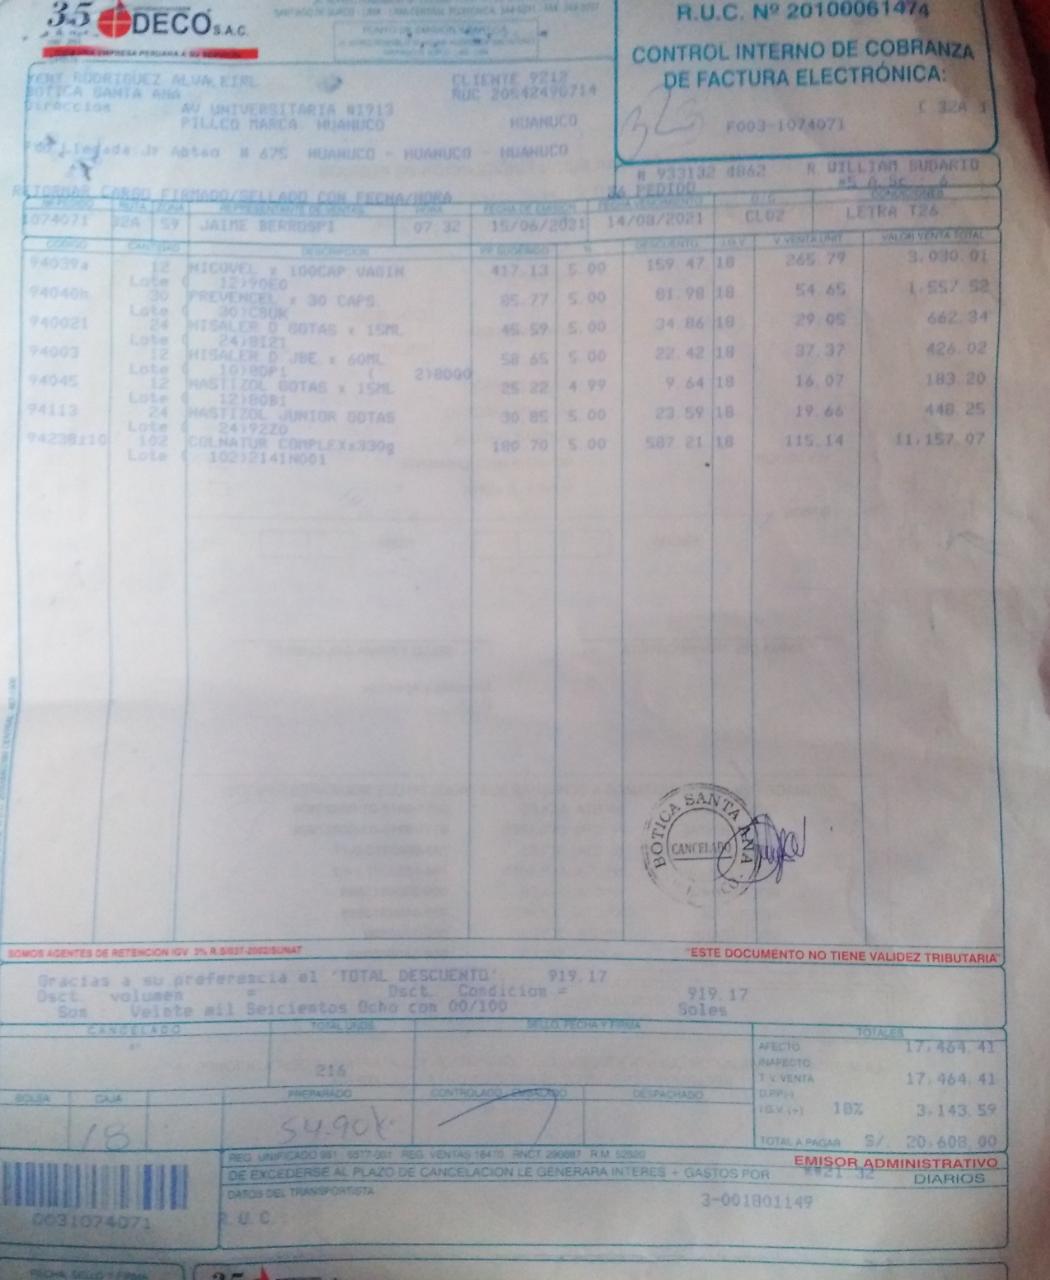 35 DECO S.A.C.
UNA EMPRESA PERUANA A SU SERVICIO
R.U.C. Nº 20100061474
CONTROL INTERNO DE COBRANZA
DE FACTURA ELECTRÓNICA:
F003-1074071
C 32A 1
RODRIGUEZ ALVA EIRL
BOTICA SANTA ANA
CLIENTE 9212
RUC 20542490714
Direccion AV UNIVERSITARIA #1913
PILLCO MARCA HUANUCO HUANUCO
# 675 HUANUCO - HUANUCO - HUANUCO
# 933132 4862 R WILLIAM SUDARIO
RETORNAR CARGO FIRMADO/SELLADO CON FECHA/HORA
PEDIDO
REPRESENTANTE DE VENTAS HORA FECHA DE EMISION FECHA VENCIMIENTO CONDICIONES
1074071 32A 59 JAIME BERROSPI 07 32 15/06/2021 14/08/2021 CL02 LETRA T26
CODIGO CANTIDAD DESCRIPCION % DESCUENTO I.G.V. V VENTA UNIT VALOR VENTA TOTAL
94039a 12 MICOVEL x 100CAP VAGIN 417.13 5.00 159.47 18 265.79 3,030.01
Lote ( 12)90E0
94040h 30 PREVENCEL x 30 CAPS 85.77 5.00 81.98 18 54.65 1,557.52
Lote (
940021 24 HISALER D GOTAS x 15ML 45.59 5.00 34.86 18 29.05 662.34
Lote ( 24)8I21
94003 12 HISALER D JBE. x 60ML 58.65 5.00 22.42 18 37.37 426.02
Lote ( 10)80P1 ( 2)80Q0
94045 12 NASTIZOL GOTAS x 15ML 25.22 4.99 9.64 18 16.07 183.20
Lote ( 12)80B1
94113 24 NASTIZOL JUNIOR GOTAS 30.85 5.00 23.59 18 19.66 448.25
Lote ( 24)92Z0
94238110 102 COLNATUR COMPLEXx330g 180.70 5.00 587.21 18 115.14 11,157.07
Lote ( 102)2141N001
BOTICA SANTA ANA
CANCELADO
SOMOS AGENTES DE RETENCION IGV 3% R.S/037-2002/SUNAT
"ESTE DOCUMENTO NO TIENE VALIDEZ TRIBUTARIA"
Gracias a su preferencia el 'TOTAL DESCUENTO'. 919.17
Dsct. volumen = Dsct. Condicion = 919.17
Son Veinte mil Seicientos Ocho con 00/100 Soles
CANCELADO TOTAL UNDS. SELLO, FECHA Y FIRMA TOTALES
216
AFECTO 17,464.41
INAFECTO
T.V. VENTA 17,464.41
I.G.V.(+) 18% 3,143.59
TOTAL A PAGAR S/. 20,608.00
BOLSA CAJA PREPARADO CONTROLADO EMBALADO DESPACHADO
18
EMISOR ADMINISTRATIVO
DE EXCEDERSE AL PLAZO DE CANCELACION LE GENERARA INTERES + GASTOS POR **21.32 DIARIOS
DATOS DEL TRANSPORTISTA
3-001801149
R.U.C.
0031074071